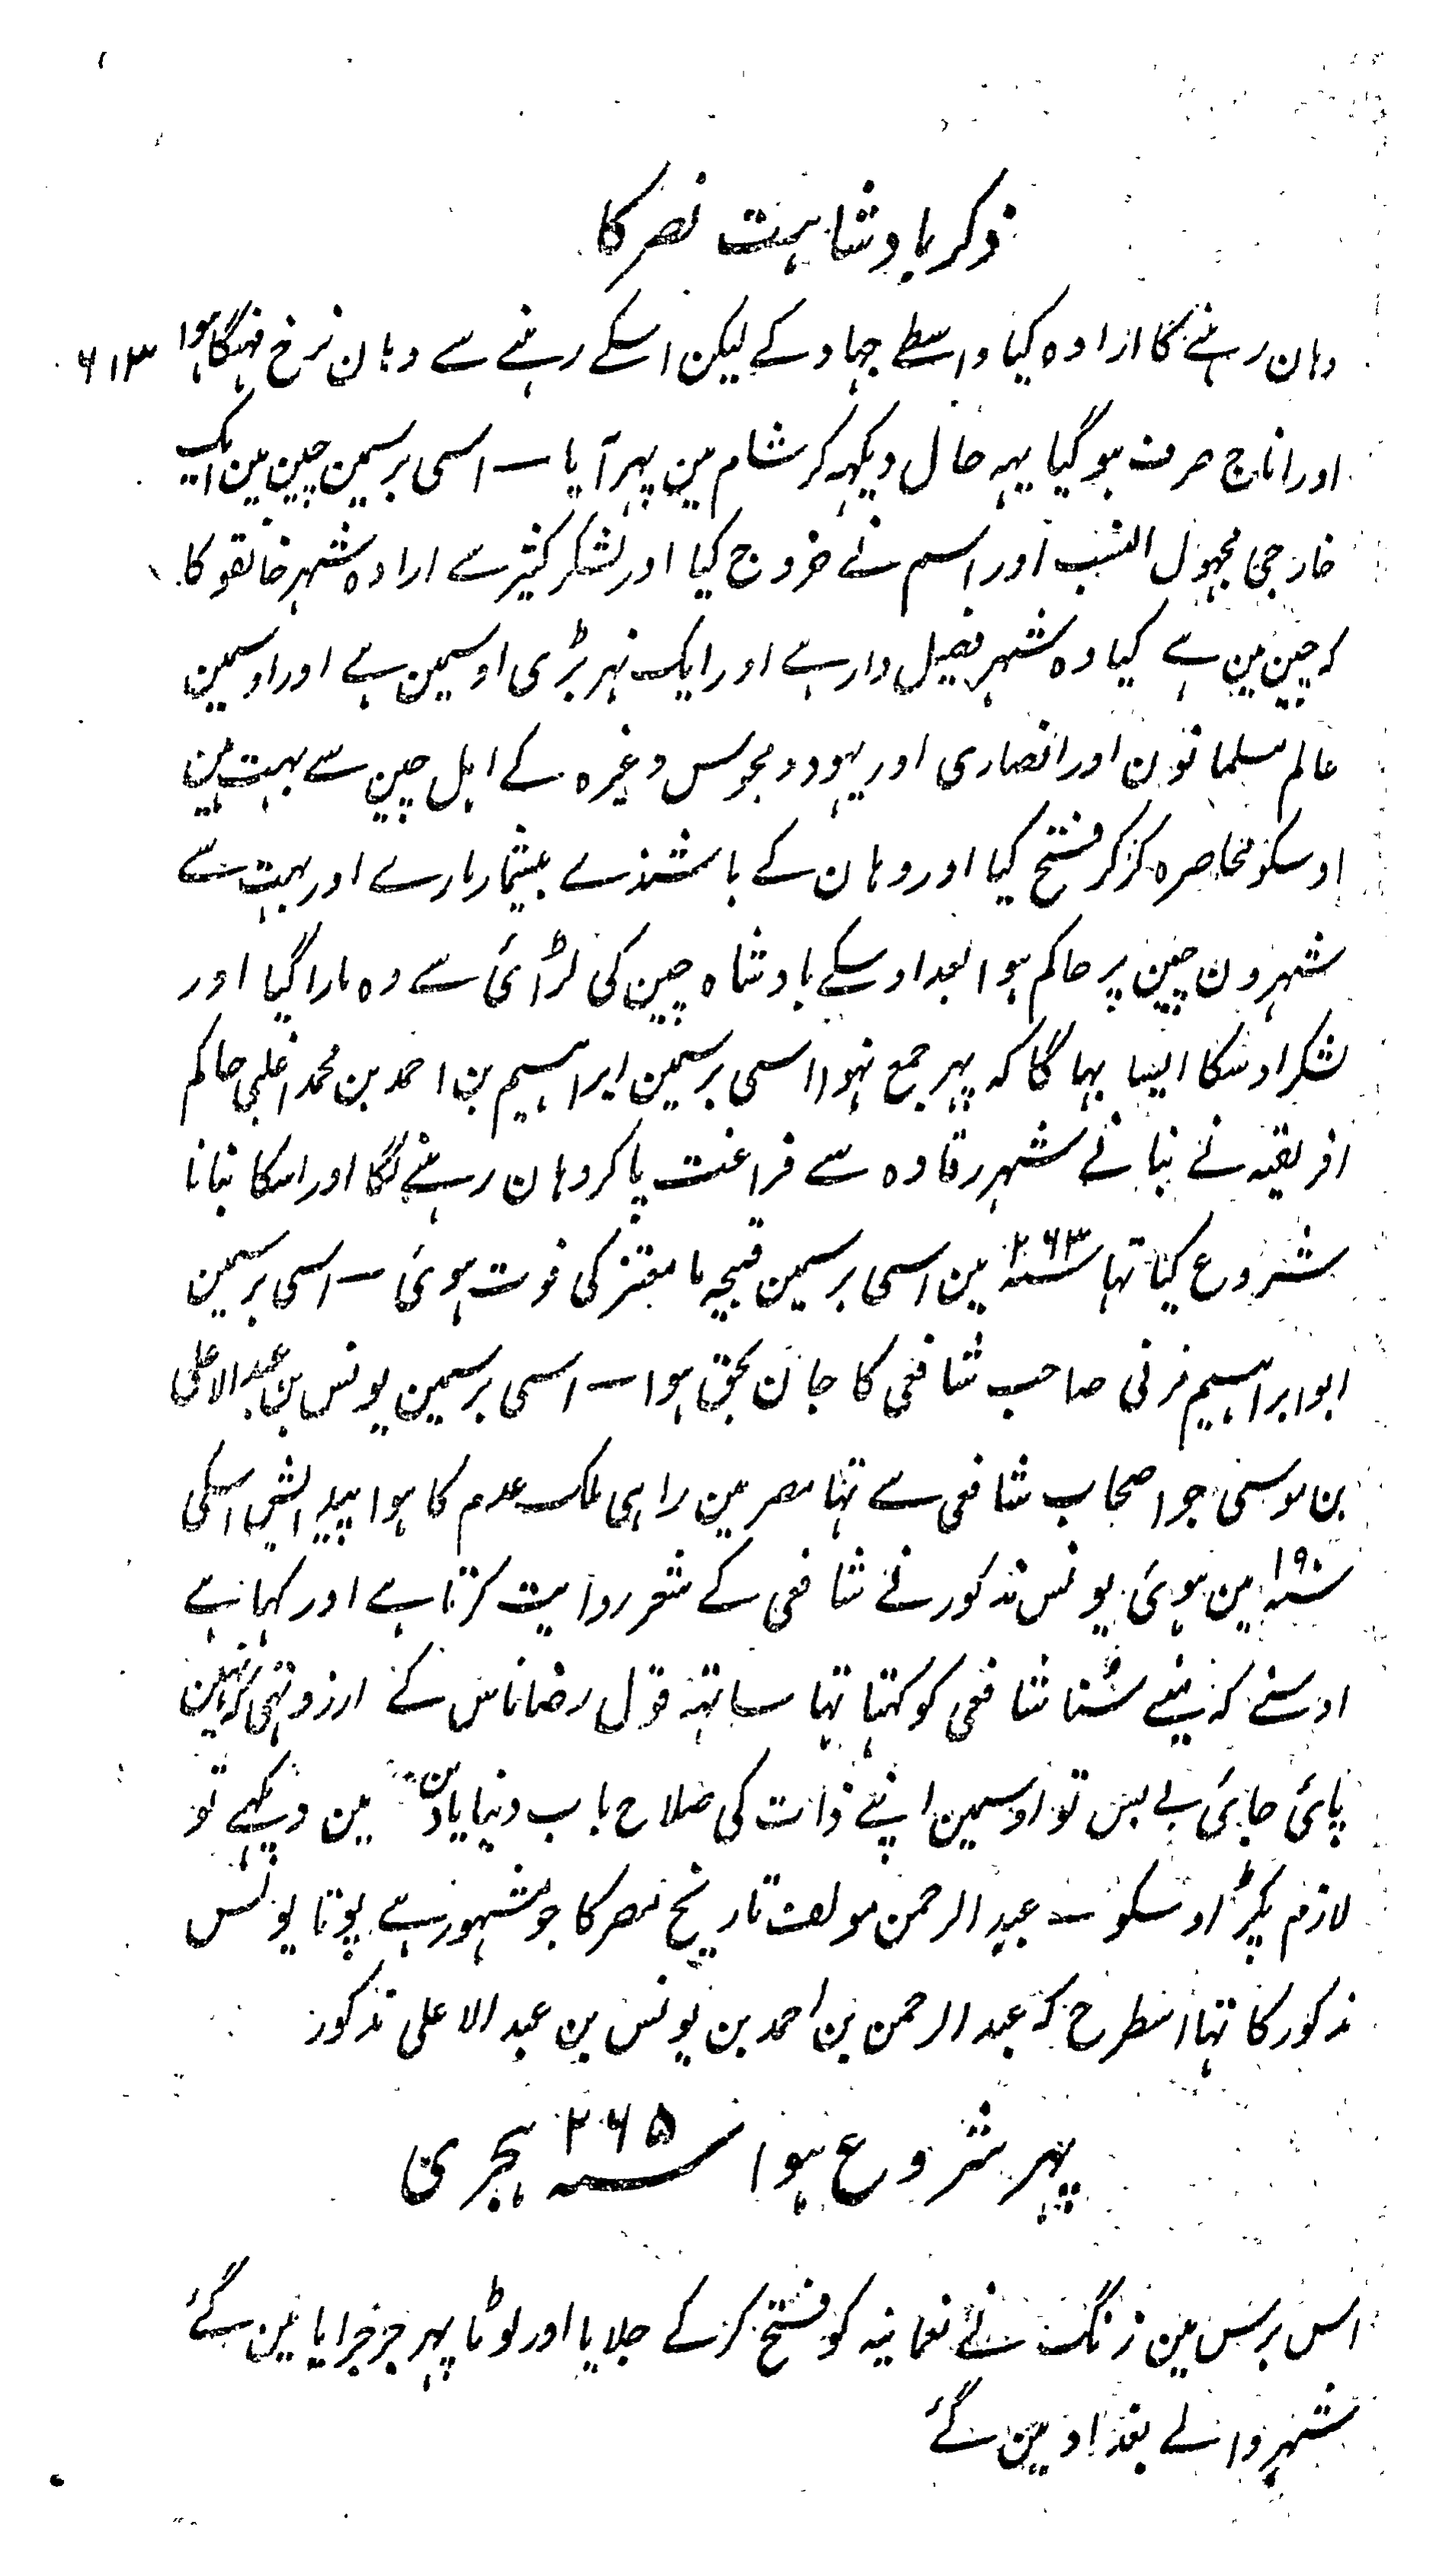 ذکر بادشاہت نصر کا
وہان رہنے کا ارادہ کیا واسطے جہاد کے لیکن اسکے رہنے سے وہان نرخ مہنگا ہوا ۶۱۳
اور اناج صرف ہو گیا یہہ حال دیکہہ کر شام مین پہر آیا — اسی برسمین چین مین ایک
خارجی مجہول النسب اور اسم نے خروج کیا اور لشکر کثیر سے ارادہ شہر خانقو کا
کہ چین مین ہے کیا وہ شہر فصیل دار ہے اور ایک نہر بڑی اوسمین ہے اور اوسمین
عالم مسلمانون اور انصاری اور یہود و مجوس وغیرہ کے اہل چین سے بہت ہین
اوسکو محاصرہ کر کر فتح کیا اور وہان کے باشندے بیشمار مارے اور بہت سے
شہرون چین پر حاکم ہوا بعد اوسکے بادشاہ چین کی لڑائی سے وہ مارا گیا اور
لشکر اوسکا ایسا بہاگا کہ پہر جمع نہوا اسی برسمین ابراہیم بن احمد بن محمد اغلبی حاکم
افریقیہ نے بنانے شہر رقادہ سے فراغت پا کر وہان رہنے لگا اور اسکا بنانا
شروع کیا تہا سنہ ۲۶۳ مین اسی برسمین قبیحہ ما معتز کی فوت ہوئی — اسی برسمین
ابو ابراہیم مزنی صاحب شافعی کا جان بحق ہوا — اسی برسمین یونس بن عبد الاعلی
بن موسی جو اصحاب شافعی سے تہا مصر مین راہی ملک عدم کا ہوا پیدایش اسکی
سنہ ۱۹۰ مین ہوئی یونس مذکور نے شافعی کے شعر روایت کرتا ہے اور کہا ہے
اوسنے کہ مینے سنا شافعی کو کہتا تہا ساتہہ قول رضا ناس کے ارزو تہی کہ نہین
پائی جائی بے بس تو اوسمین اپنے ذات کی صلاح باب دنیا یا دین مین دیکہے تو
لازم پکڑ اوسکو — عبد الرحمن مولف تاریخ مصر کا جو مشہور ہے پوتا یونس
مذکور کا تہا اسطرح کہ عبد الرحمن بن احمد بن یونس بن عبد الاعلی مذکور
پہر شروع ہوا سنہ ۲۶۵ ہجری
اس برس مین زنگ نے نعمانیہ کو فتح کر کے جلایا اور لوٹا پہر جرجرایا مین گئے
شہر والے بغداد مین گئے